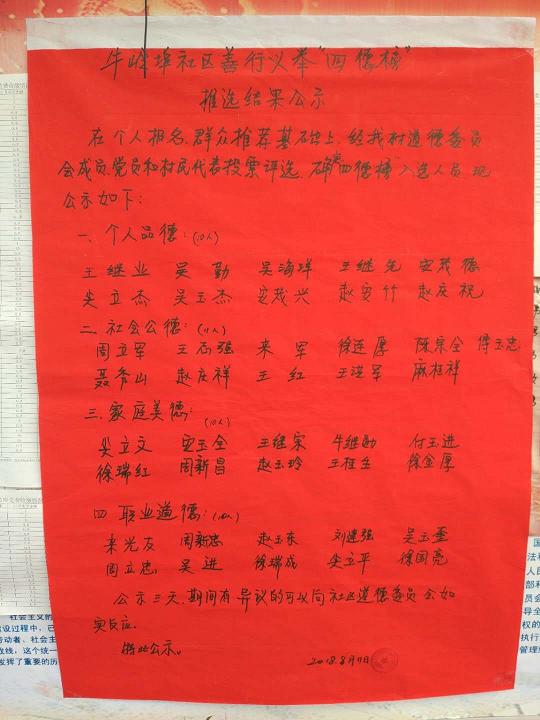 牛岭埠社区善行义举"四德榜"
推选结果公示
在个人报名,群众推荐基础上,经我村道德委员
会成员,党员和村民代表投票评选,确定"四德榜"入选人员,现
公示如下:
一、个人品德:(10人)
王继业 吴勤 吴海洋 王继先 安茂德
尖立杰 吴玉杰 安茂兴 赵安竹 赵庆祝
二、社会公德:(11人)
周立军 王石强 来军 徐连厚 陈宗全 傅玉忠
聂秀山 赵庆祥 王红 王洪军 麻桂祥
三、家庭美德:(10人)
尖立文 安玉全 王继宋 牛继勋 付玉进
徐瑞红 周新昌 赵玉玲 王桂生 徐金厚
四、职业道德:(10人)
来光友 周新忠 赵玉东 刘建强 吴玉奎
周立忠 吴进 徐瑞成 尖立平 徐国亮
公示三天,期间有异议的可以向社区道德委员会如
实反应.
特此公示。
2018.8月7日